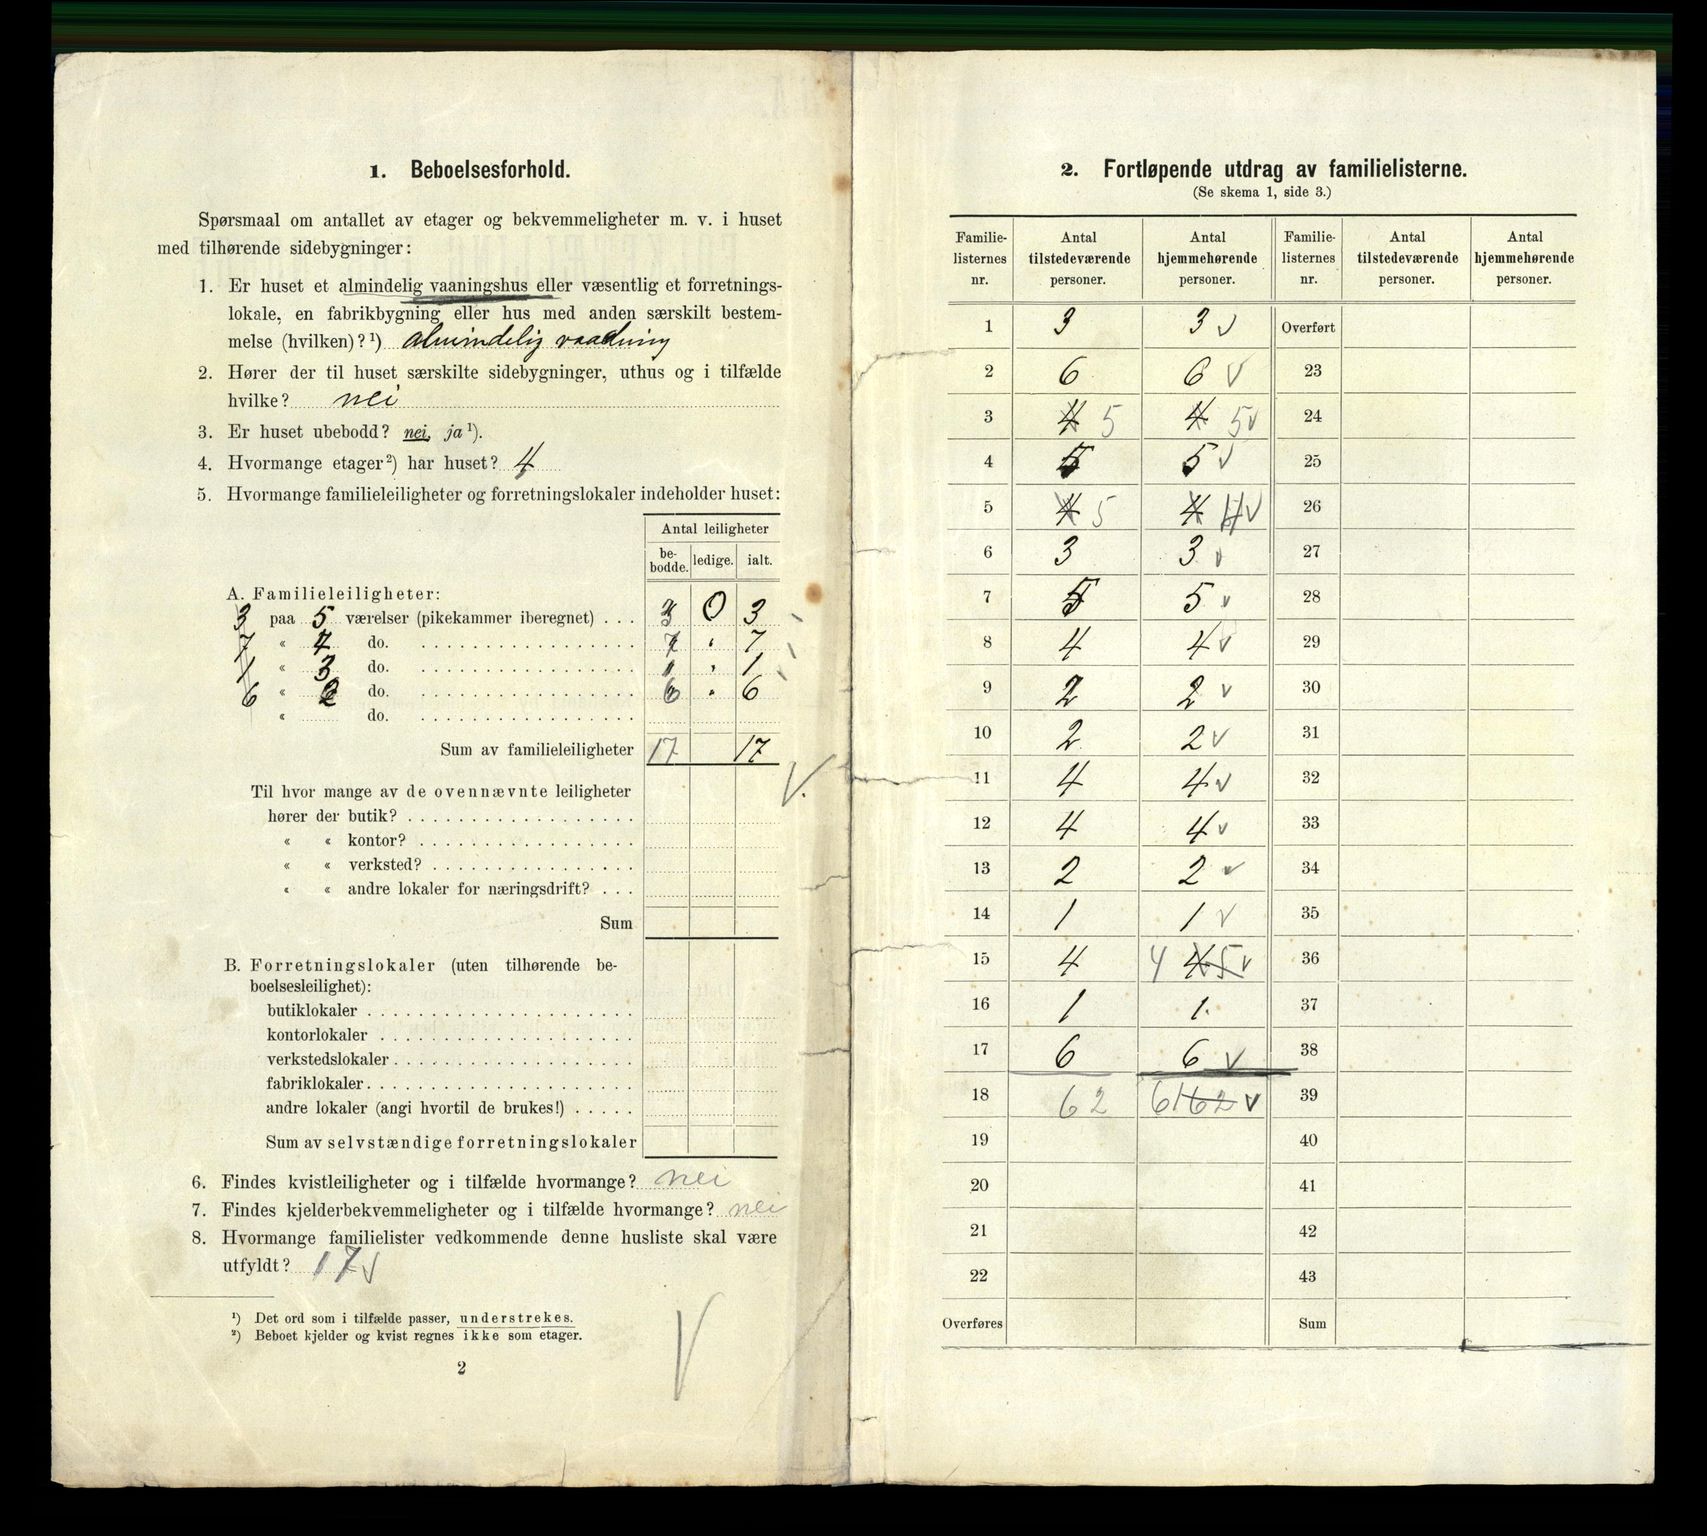 1. Beboelsesforhold.
Spørsmaal om antallet av etager og bekvemmeligheter m. v. i huset
med tilhørende sidebygninger:
1. Er huset et almindelig vaaningshus eller væsentlig et forretnings-
lokale, en fabrikbygning eller hus med anden særskilt bestem-
melse (hvilken)?¹) almindelig vaaning
2. Hører der til huset særskilte sidebygninger, uthus og i tilfælde
hvilke? nei
3. Er huset ubebodd? nei, ja ¹).
4. Hvormange etager²) har huset? 4
5. Hvormange familieleiligheter og forretningslokaler indeholder huset:
Antal leiligheter
be-
bodde. ledige. ialt.
A. Familieleiligheter:
3 paa 5 værelser (pikekammer iberegnet) . . . 3 0 3
7 « 4 do. 7 " 7
1 « 3 do. 1 " 1
6 « 2 do. 6 " 6
« do.
Sum av familieleiligheter 17 17
Til hvor mange av de ovennævnte leiligheter
hører der butik?
« « kontor?
« « verksted?
« « andre lokaler for næringsdrift? . . .
Sum
B. Forretningslokaler (uten tilhørende be-
boelsesleilighet):
butiklokaler
kontorlokaler
verkstedslokaler
fabriklokaler
andre lokaler (angi hvortil de brukes!)
Sum av selvstændige forretningslokaler
6. Findes kvistleiligheter og i tilfælde hvormange? nei
7. Findes kjelderbekvemmeligheter og i tilfælde hvormange? nei
8. Hvormange familielister vedkommende denne husliste skal være
utfyldt? 17 v
¹) Det ord som i tilfælde passer, understrekes.
²) Beboet kjelder og kvist regnes ikke som etager.
2
2. Fortløpende utdrag av familielisterne.
(Se skema 1, side 3.)
Familie-
listernes
nr. Antal
tilstedeværende
personer. Antal
hjemmehørende
personer. Familie-
listernes
nr. Antal
tilstedeværende
personer. Antal
hjemmehørende
personer.
1 3 3 v Overført
2 6 6 v 23
3 4 5 4 5 v 24
4 5 5 v 25
5 4 5 4 4 v 26
6 3 3 v 27
7 5 5 v 28
8 4 4 v 29
9 2 2 v 30
10 2 2 v 31
11 4 4 v 32
12 4 4 v 33
13 2 2 v 34
14 1 1 v 35
15 4 4 4 5 v 36
16 1 1. 37
17 6 6 v 38
18 62 61 62 v 39
19 40
20 41
21 42
22 43
Overføres Sum